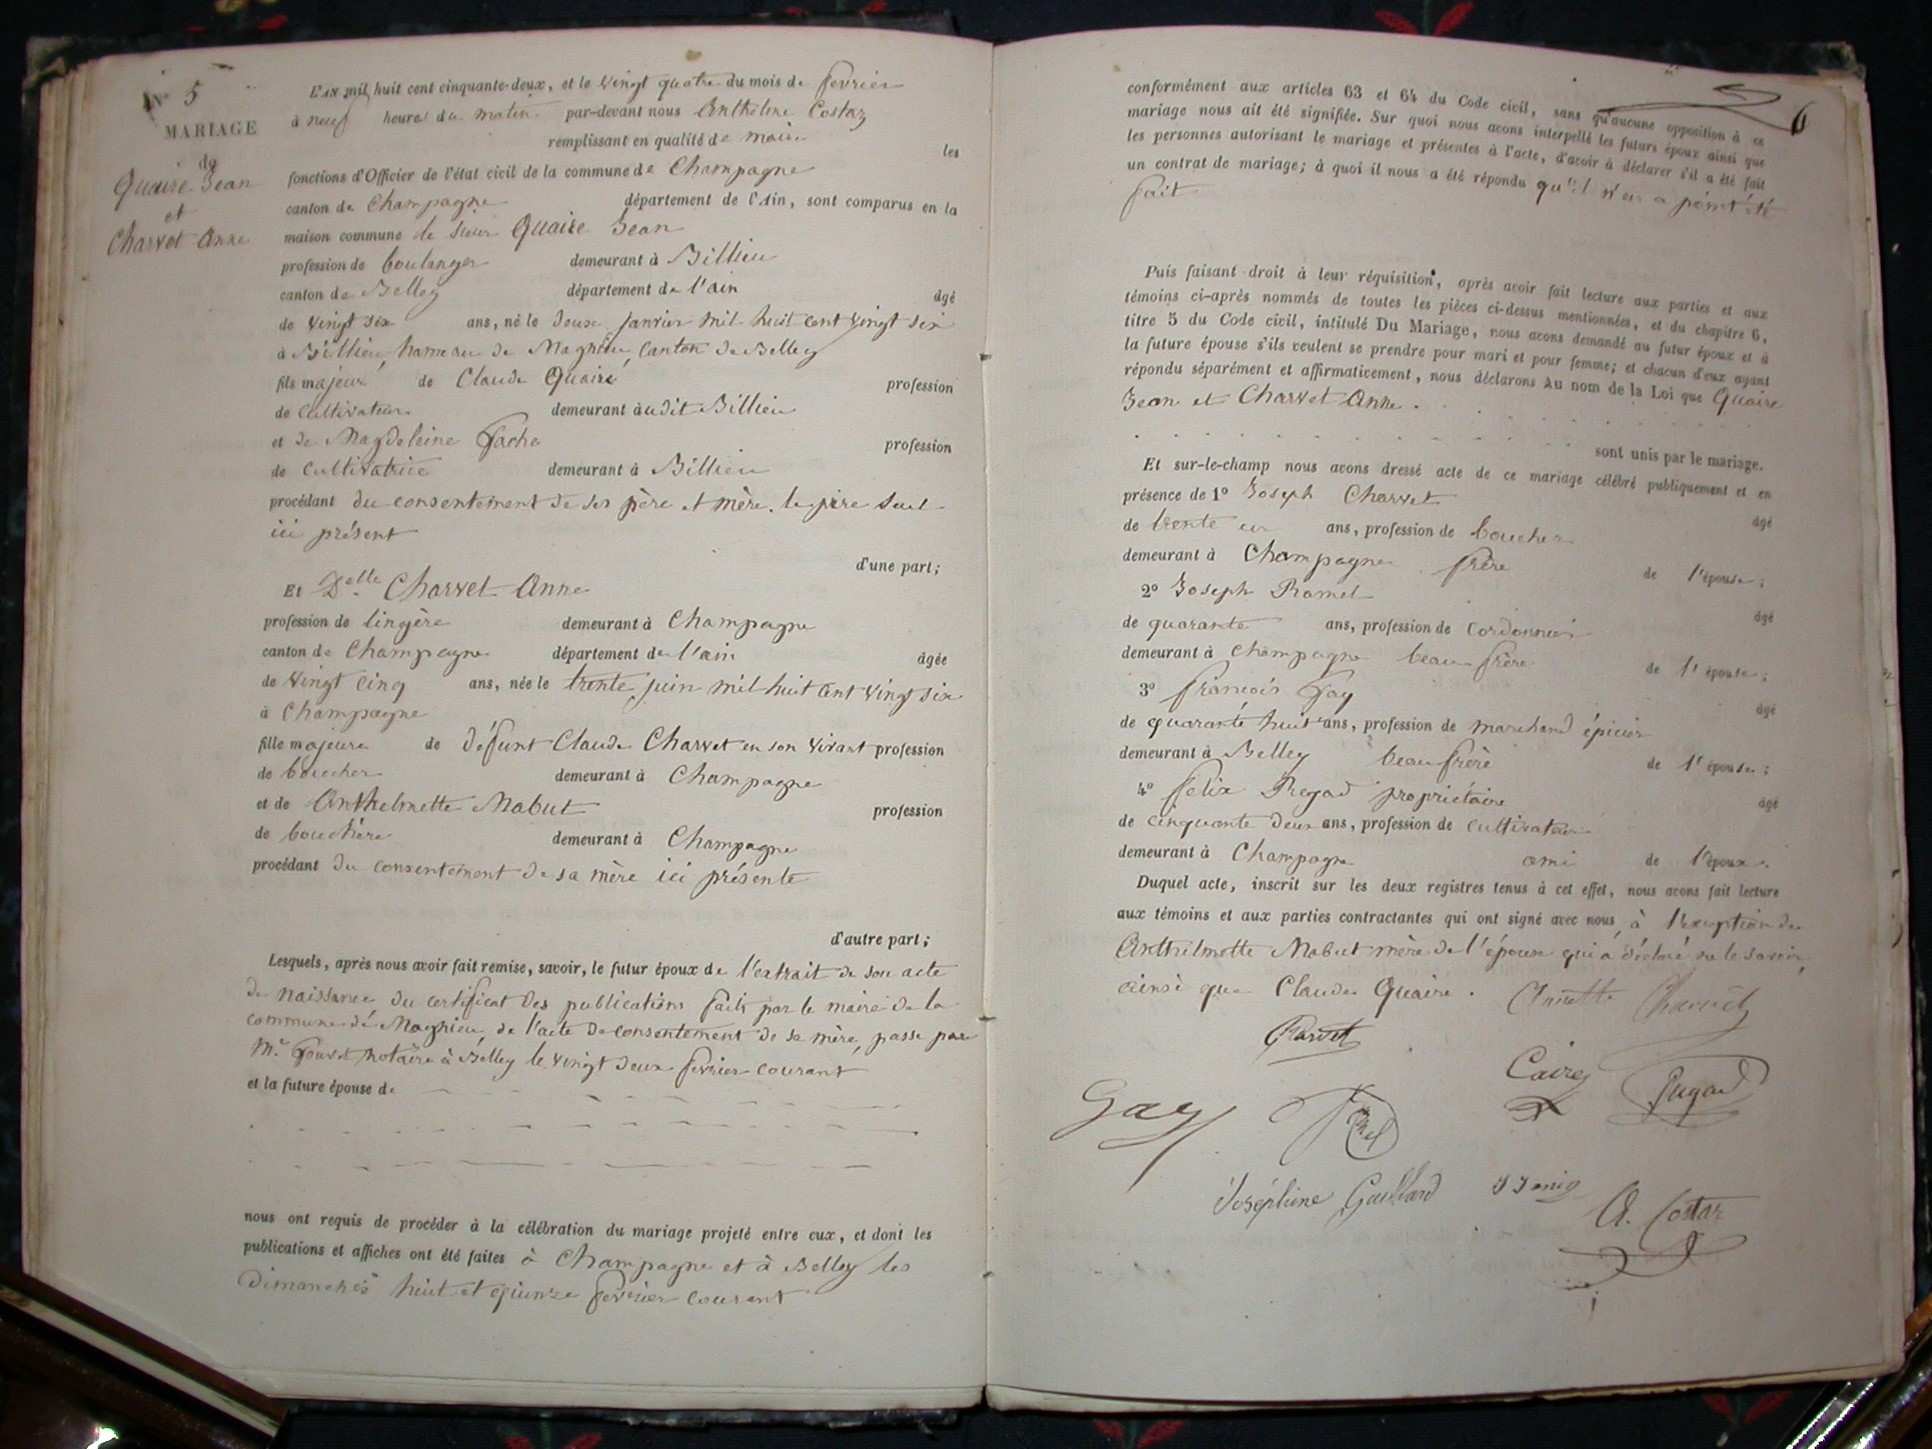 N° 5
MARIAGE
de
Quaire Jean
et
Charvet Anne
L'an mil huit cent cinquante-deux, et le vingt quatre du mois de février
à neuf heures du matin par-devant nous Anthelme Costaz
remplissant en qualité de maire les
fonctions d'Officier de l'état civil de la commune de Champagne
canton de Champagne département de l'Ain, sont comparus en la
maison commune le sieur Quaire Jean
profession de boulanger demeurant à Billieu
canton de Belley département de l'ain âgé
de vingt six ans, né le deux janvier mil huit cent vingt six
à Billieu, hameau de Magnieu, canton de Belley
fils majeur de Claude Quaire profession
de cultivateur demeurant audit Billieu
et de Magdeleine Gache profession
de cultivatrice demeurant à Billieu
procédant du consentement de ses père et mère. le père seul
ici présent
d'une part;
Et Delle Charvet Anne
profession de lingère demeurant à Champagne
canton de Champagne département de l'ain âgée
de vingt cinq ans, née le trente juin mil huit cent vingt six
à Champagne
fille majeure de défunt Claude Charvet en son vivant profession
de boucher demeurant à Champagne
et de Anthelmette Mabut profession
de bouchère demeurant à Champagne
procédant du consentement de sa mère ici présente
d'autre part;
Lesquels, après nous avoir fait remise, savoir, le futur époux de l'extrait de son acte
de naissance du certificat des publications faits par le maire de la
commune de Magnieu, de l'acte de consentement de sa mère, passé par
Me notaire à Belley le vingt deux février courant
et la future épouse de
nous ont requis de procéder à la célébration du mariage projeté entre eux, et dont les
publications et affiches ont été faites à Champagne et à Belley les
dimanches huit et quinze février courant
6
conformément aux articles 63 et 64 du Code civil, sans qu'aucune opposition à ce
mariage nous ait été signifiée. Sur quoi nous avons interpellé les futurs époux ainsi que
les personnes autorisant le mariage et présentes à l'acte, d'avoir à déclarer s'il a été fait
un contrat de mariage; à quoi il nous a été répondu qu'il n'en a point été
fait
Puis faisant droit à leur réquisition, après avoir fait lecture aux parties et aux
témoins ci-après nommés de toutes les pièces ci-dessus mentionnées, et du chapitre 6,
titre 5 du Code civil, intitulé Du Mariage, nous avons demandé au futur époux et à
la future épouse s'ils veulent se prendre pour mari et pour femme; et chacun d'eux ayant
répondu séparément et affirmativement, nous déclarons Au nom de la Loi que Quaire
Jean et Charvet Anne.
sont unis par le mariage.
Et sur-le-champ nous avons dressé acte de ce mariage célébré publiquement et en
présence de 1° Joseph Charvet âgé
de trente un ans, profession de boucher
demeurant à Champagne frère de l'épouse;
2° Joseph Ramel âgé
de quarante ans, profession de cordonnier
demeurant à Champagne beau frère de l'épouse;
3° François Gay âgé
de quarante huit ans, profession de marchand épicier
demeurant à Belley beau frère de l'épouse;
4° Felix Pugad propriétaire âgé
de cinquante deux ans, profession de cultivateur
demeurant à Champagne ami de l'époux.
Duquel acte, inscrit sur les deux registres tenus à cet effet, nous avons fait lecture
aux témoins et aux parties contractantes qui ont signé avec nous, à l'exception de
Anthelmette Mabut mère de l'épouse qui a déclaré ne le savoir,
ainsi que Claude Quaire. Annette Charvet
Charvet
Caire Pugad
Gay
Joséphine Gaillard
A. Costaz